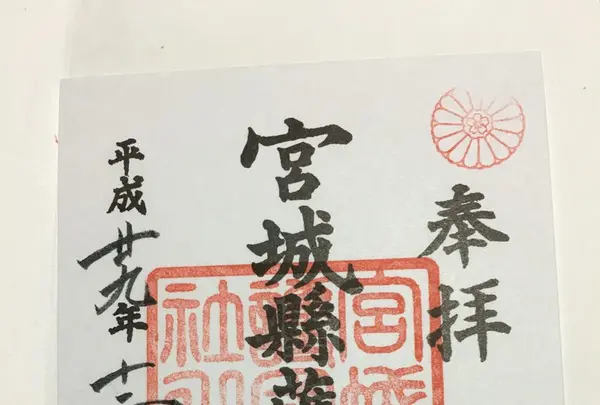 奉拝
宮城縣
平成廿九年十
宮
社